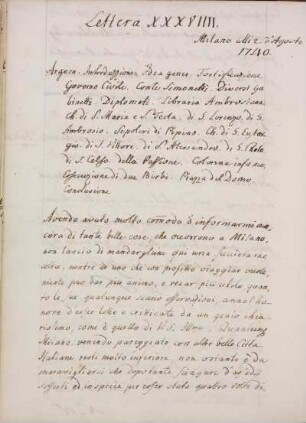 Lettera XXXVIIII.
Milano Alli 2. d'Agosto
1740.
Argom. Introduzzione. Idea gener. Fortificazione
Governo Civile. Conte Simonetti. Diversi ga
binetti. Diplomati. Libraria Ambrosiana
Ch. di S. Maria e S. Tecla. di S. Lorenzo, di S.
Ambrosio. Sepolcri di Pipino. Ch. di S.
di S. Vittore. di S. Alessandro. di S. Paolo
di S. Celso. della Passione. Colonna infame
Esecuzione di due Birbi. Piazza del Domo.
Conclusione
Avendo avuto molto comodo d'informarmi an
cora di tante belle cose, che occorrono a Milano,
non lascio di mandargliene qui una
mentre da uno che con profitto viaggiar vuole,
niente può dar più animo, e recar più utile quan
to le, in qualunque osservazioni, quando
hanno d'esser lette e criticate da un genio chia
rissimo, come è quello di V. S. Illma. Quantunque
Milano, venendo pareggiato con altre belle Città
Italiane resti molto inferiore, non ostante è da
meravigliarsi che dopo tante sciagure d'
e in specie per esser stato quattro volte di